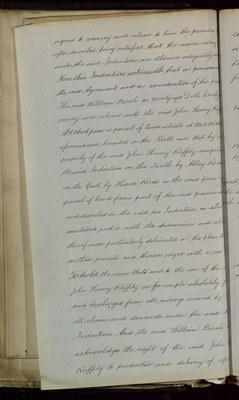 agreed to convey and release to him the premises
after described being satisfied that the monies owing
under the said Indentures are otherwise adequately
Now this Indenture witnesseth that in pursuance
the said Agreement and in consideration of the
The said William Birch as Mortgagee Doth hereby
convey and release unto the said John Henry
All that piece or parcel of land situate at West
aforesaid bounded on the North and West by
property of the said John Henry Keeffly
the said Indenture on the South by Abbey Road
on the East by Road as the said piece
parcel of land forms part of the said premises
and described in the said two Indentures as
mentioned and is with the dimensions and
thereof more particularly delineated in the plan
on these presents and thereon edged with a red
To hold the same Unto and to the use of the
John Henry Keeffly in fee simple absolutely
and discharged from all moneys secured by
all claims and demands under the said
Indentures And the said William Birch
acknowledges the right of the said John
Keeffly to production and delivery of